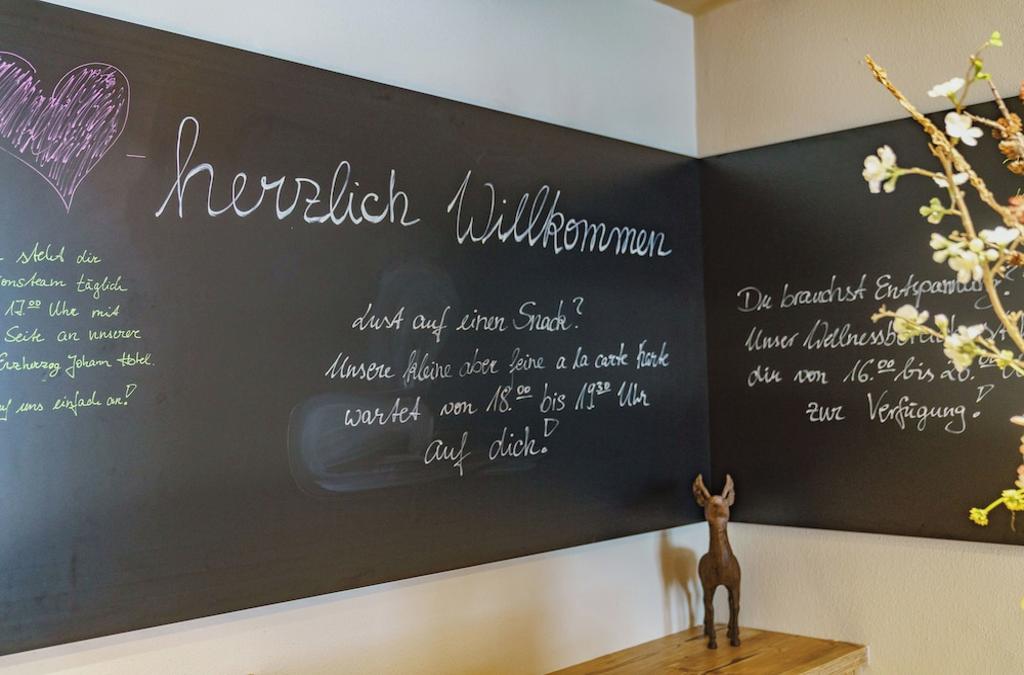 steht dir
täglich
17.00 Uhr mit
Seite an unserer
Erzherzog Johann Hotel.
uns einfach an!
herzlich Willkommen
Lust auf einen Snack?
Unsere kleine aber feine a la carte Karte
wartet von 18.00 bis 19 30 Uhr
auf dich!
Du brauchst Entspannung?
Unser Wellnessbereich
dir von 16.00 bis 20.00
zur Verfügung!